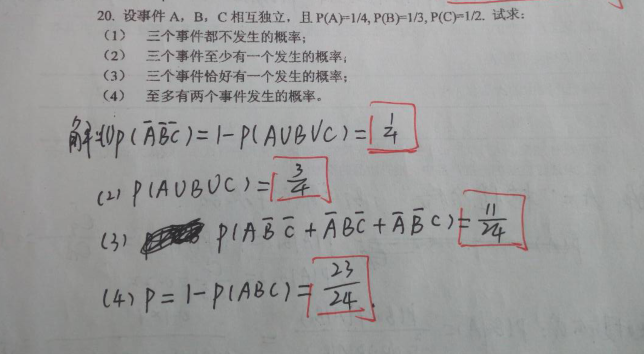 20. 设事件 A，B，C 相互独立，且 P(A)=1/4, P(B)=1/3, P(C)=1/2. 试求：
（1） 三个事件都不发生的概率；
（2） 三个事件至少有一个发生的概率；
（3） 三个事件恰好有一个发生的概率；
（4） 至多有两个事件发生的概率。
解:(1) P(A̅B̅C̅)=1-P(A∪B∪C)=1/4
(2) P(A∪B∪C)=3/4
(3) P(AB̅C̅+A̅BC̅+A̅B̅C)=11/24
(4) P=1-P(ABC)=23/24.